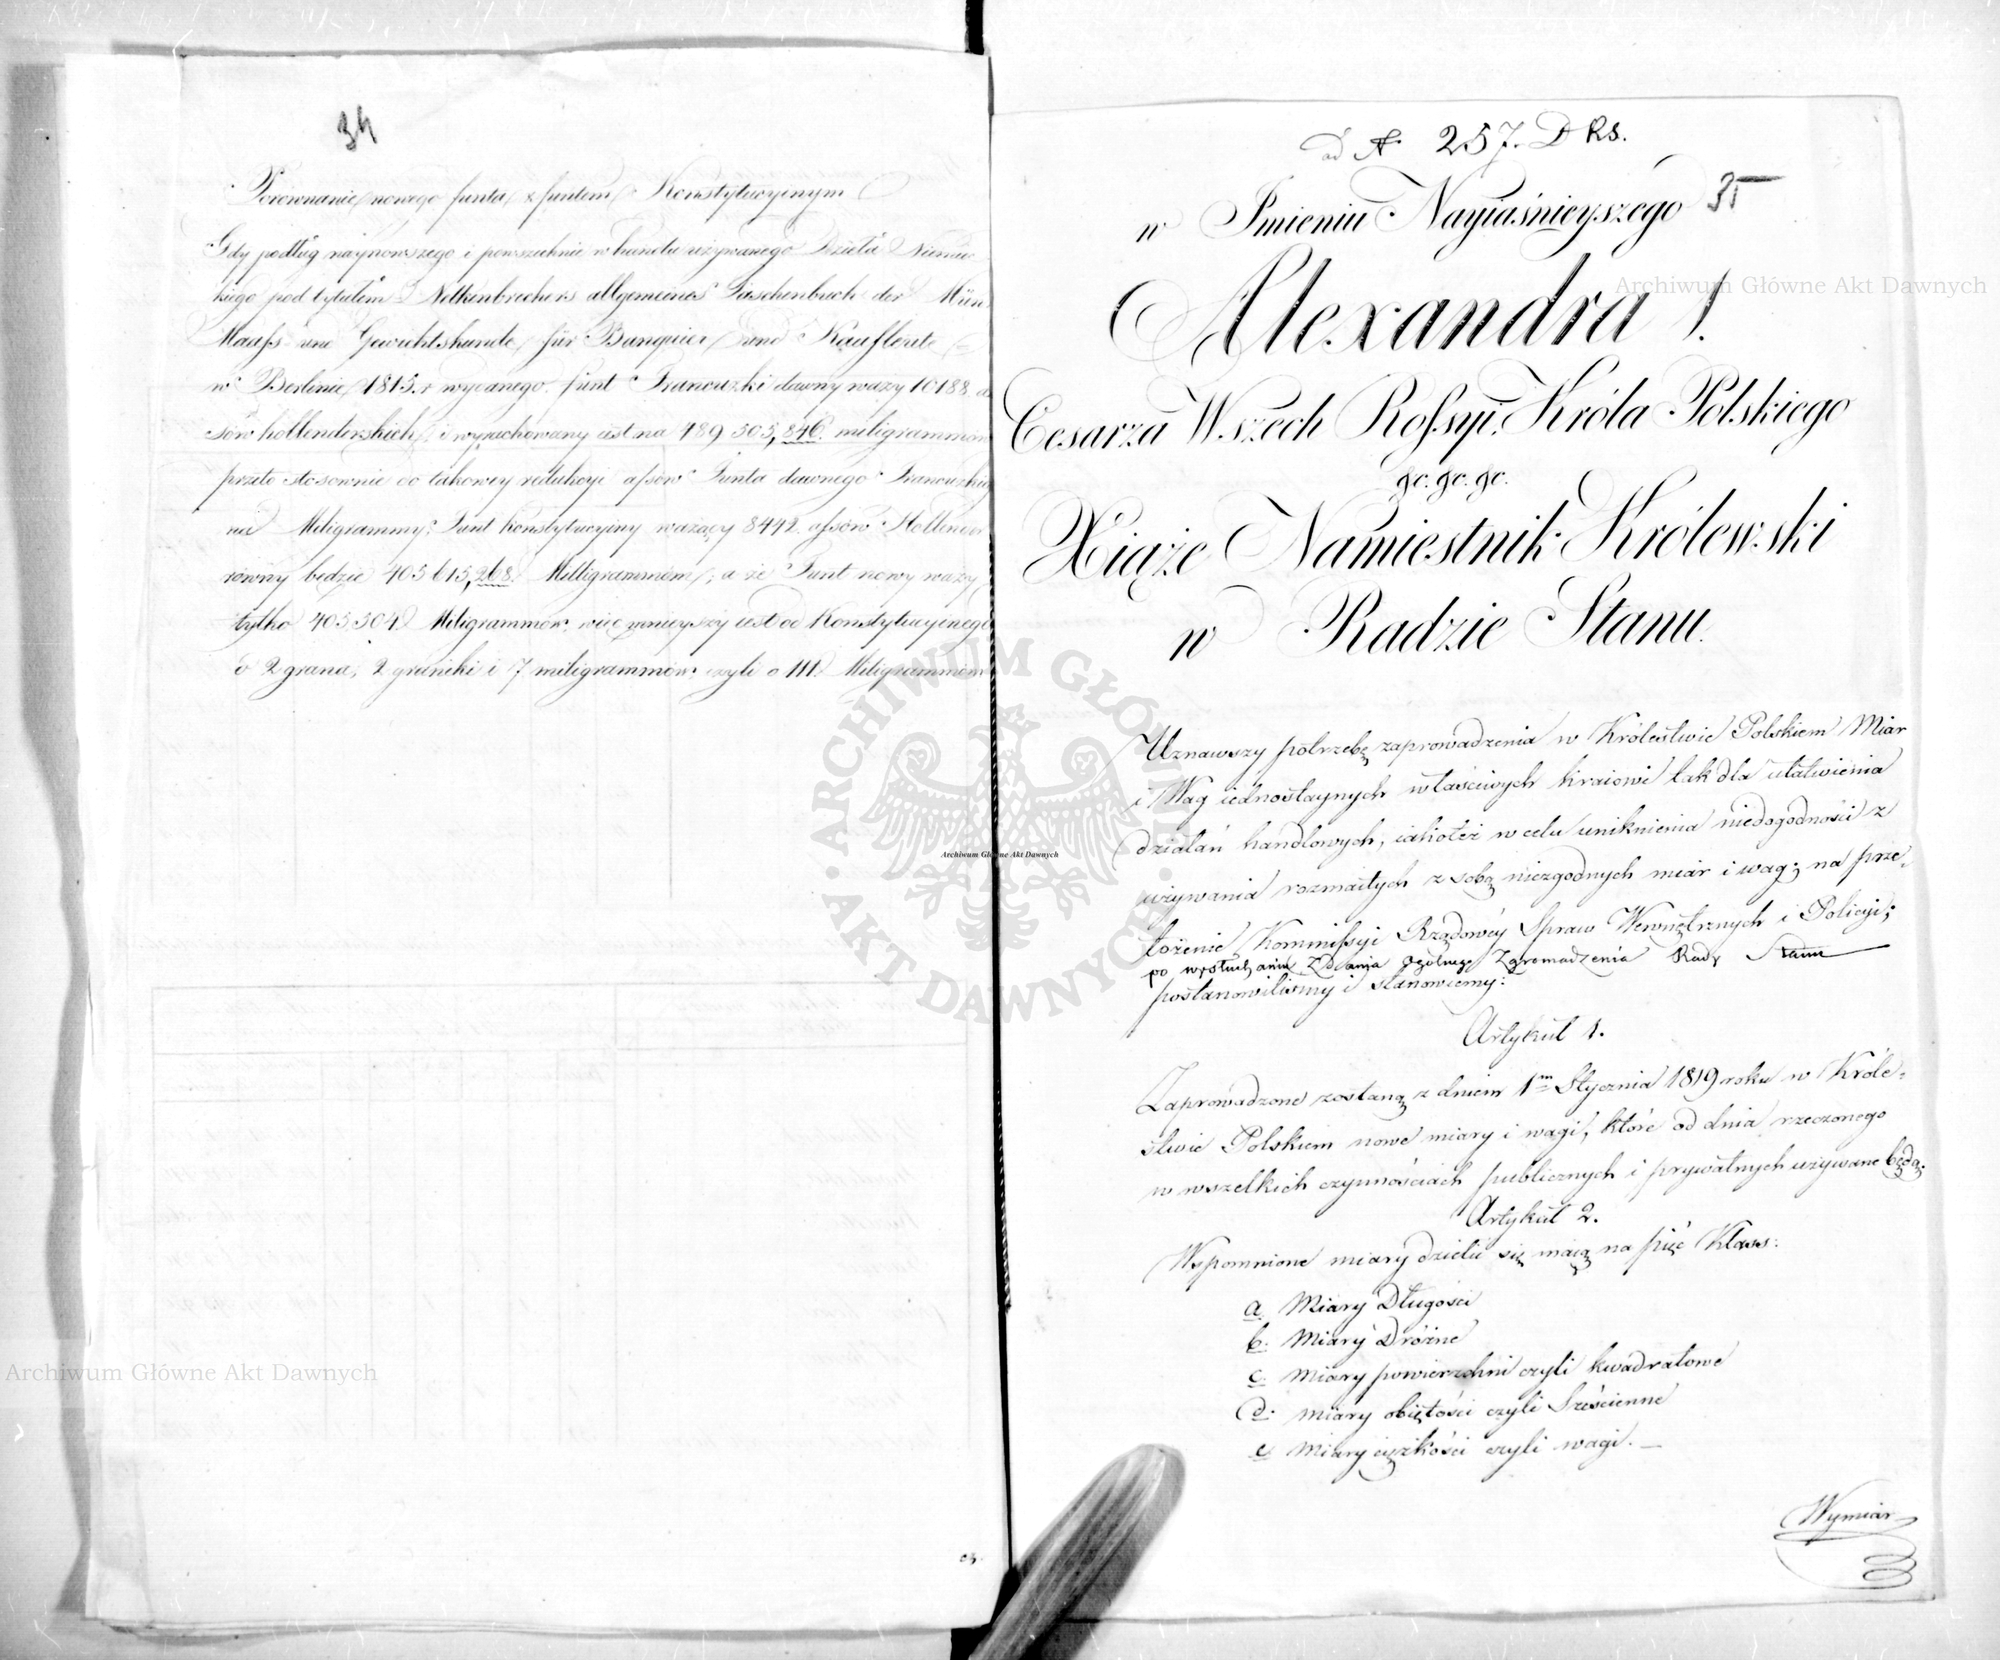 34
Porównanie nowego funta z funtem Konstytucyinym
Gdy podług naynowszego i powszechnie w handlu używanego Dzieła Niemiec
kiego pod tytułem Nelkenbrechers allgemeines Taschenbuch der Münz
Maaß und Gewichtskunde für Banquier und Kaufleute
w Berlinie 1815. r wydanego. funt Francuzki dawny waży 10188. as
sów hollenderskich, i wyrachowany iest na 489 505,846. miligrammów
przeto stosownie do takowey redukcyi assów Funta dawnego Francuzkie
na Miligrammy; Funt konstytucyiny ważący 8442. assów Hollender
równy będzie 405615,268. Milligrammom; a że Funt nowy waży
tylko 405,504. Miligrammów, więc mnieyszy iest od Konstytucyinego
o 2 grana, 2 graniki i 7 miligrammów, czyli o 111. Miligrammów
ad N 257. D RS.
35
w Imieniu Nayiaśnieyszego
Alexandra I.
Cesarza Wszech Rossyi, Króla Polskiego
&c. &c. &c.
Xiąże Namiestnik Królewski
w Radzie Stanu.
Uznawszy potrzebę zaprowadzenia w Królestwie Polskiem Miar
i Wag iednostaynych właściwych kraiowi tak dla ułatwienia
działań handlowych, iakoteż w celu uniknienia niedogodności z
używania rozmaitych z sobą niezgodnych miar i wag; na prze-
łożenie Kommissyi Rządowéy Spraw Wewnętrznych i Policyi;
po wysłuchaniu Zdania Ogólnego Zgromadzenia Rady Stanu
postanowiliśmy i stanowiemy:
Artykuł 1.
Zaprowadzone zostaną z dniem 1m Stycznia 1819 roku w Króle-
stwie Polskiem nowe miary i wagi, które od dnia rzeczonego
w wszelkich czynnościach publicznych i prywatnych używane będą.
Artykuł 2.
Wspomnione miary dzielić się maią na pięć Klass:
a. Miary Długości
b. Miary Dróżne
c. Miary powierzchni czyli kwadratowe
d. Miary obiętości czyli Sześcienne
e. Miary ciężkości czyli wagi. —
Wymiar
Archiwum Główne Akt Dawnych
Archiwum Główne Akt Dawnych
Archiwum Główne Akt Dawnych
· ARCHIWUM GŁÓWNE · AKT DAWNYCH